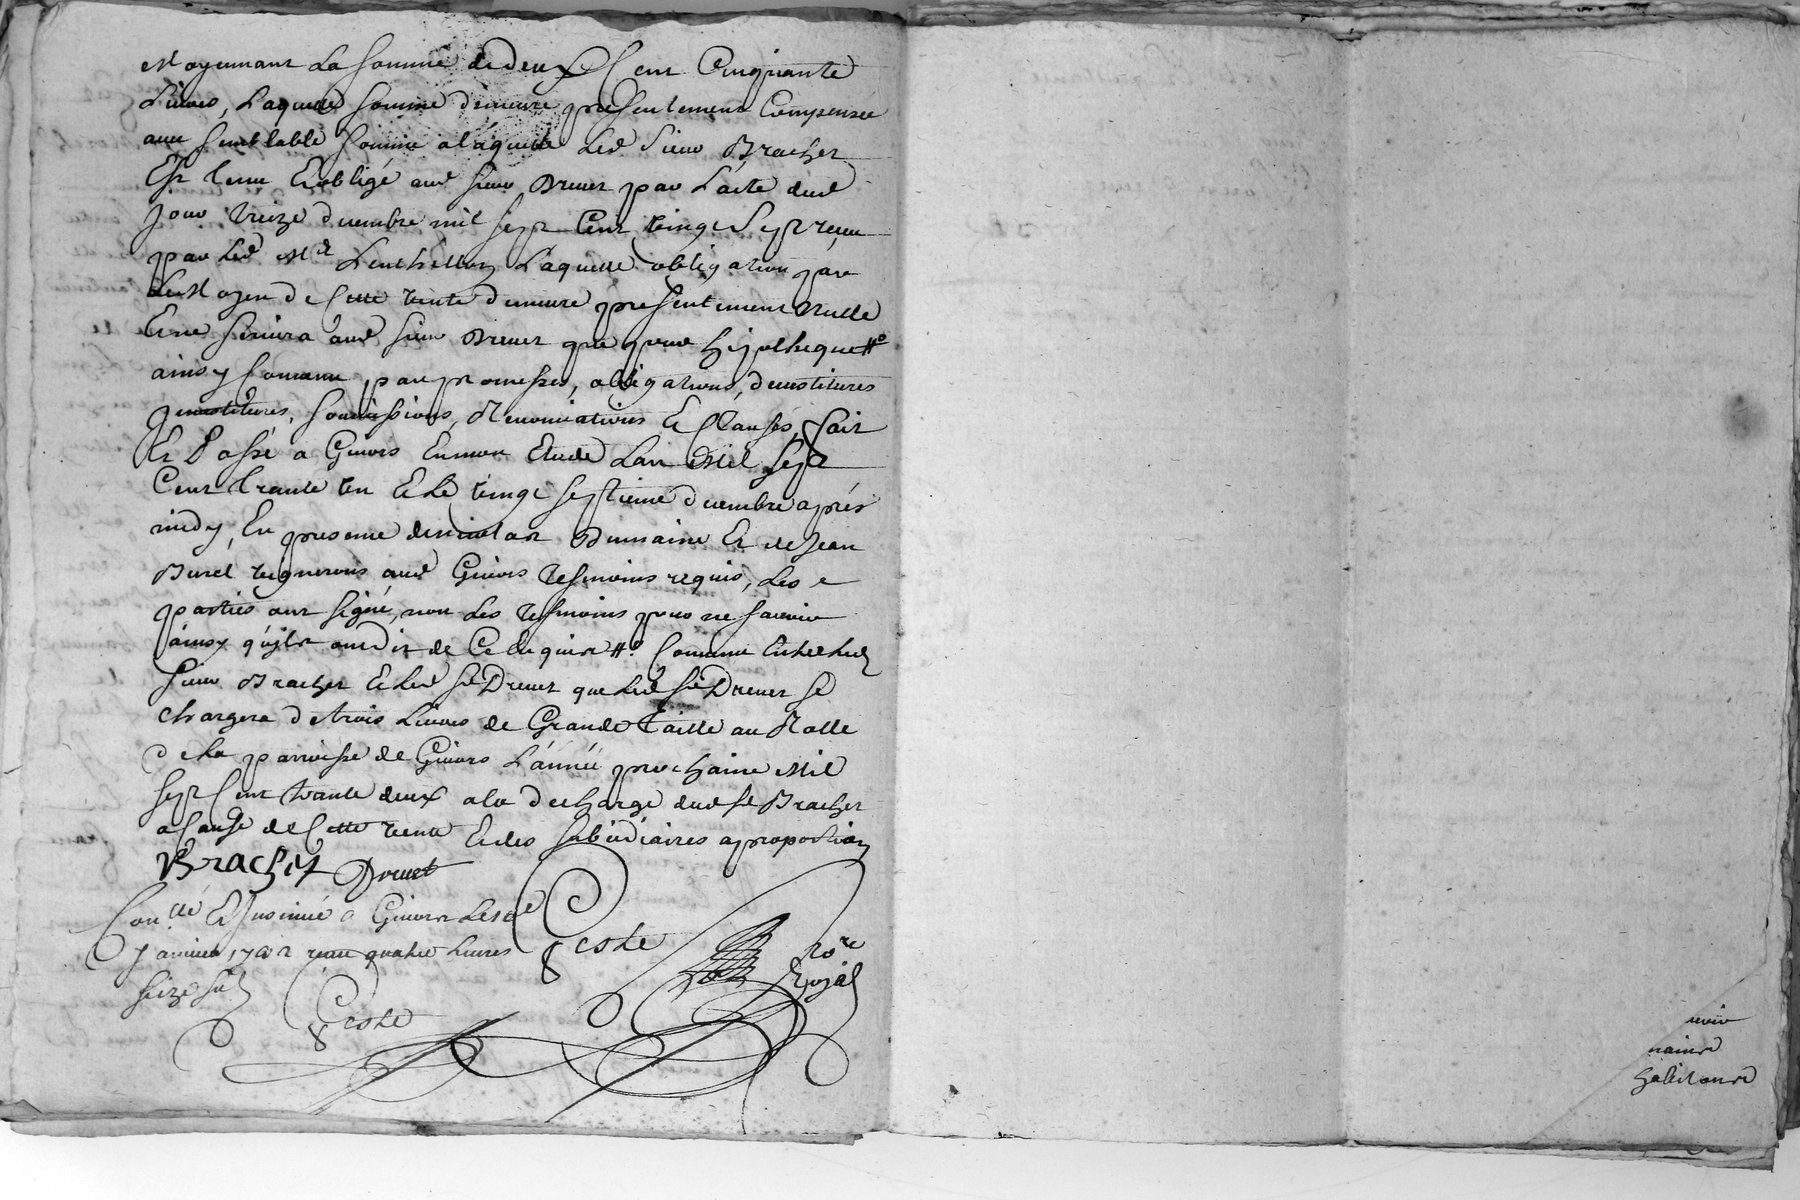 Moyennant La somme de deux Cent Cinquante
Livres, Laquelle somme demeure presentement Compensée
avec semblable somme a laquelle Led Sieur Brachet
Est tenu Et obligé aud sieur Drevet par L'acte dud
jour treize decembre mil sept Cent vingt Sept receu
par Led Me Laquelle obligation par
Le Moyen de Cette vente demeure presentement Nulle
Et ne servira aud sieur Drevet que pour hypotheque
ainsy Convenu, par promesses, obligations, devestitures
jnvestitures, soumissions, Renonciations Et Clauses, fait
Et Passé a Givors En mon Etude L'an Mil sept
Cent trante un Et Le vingt septieme decembre aprés
midy, En presence de Dumaine Et de Jean
Burel vignerons aud Givors tesmoins requis, Les
parties ont signé, non Les tesmoins pour ne scavoir
ainsy qu'ils ont Dit de Ce Enquis Convenu Entre Led
Sieur Brachet Et Led Sr Drevet que Led Sr Drevet se
chargera de trois Livres de Grande Taille au Rolle
de La parroisse de Givors L'année prochaine Mil
sept Cent trante deux a la decharge dud Sr Brachet
a Cause de Cette vente Et des subsidiaires a proportion
Brachet Drevet
Conllé Et Jnsinué a Givors Le
janvier 1732 receu quatre Livres
seize sols
Geste
Nore
Royal
Geste
habitans